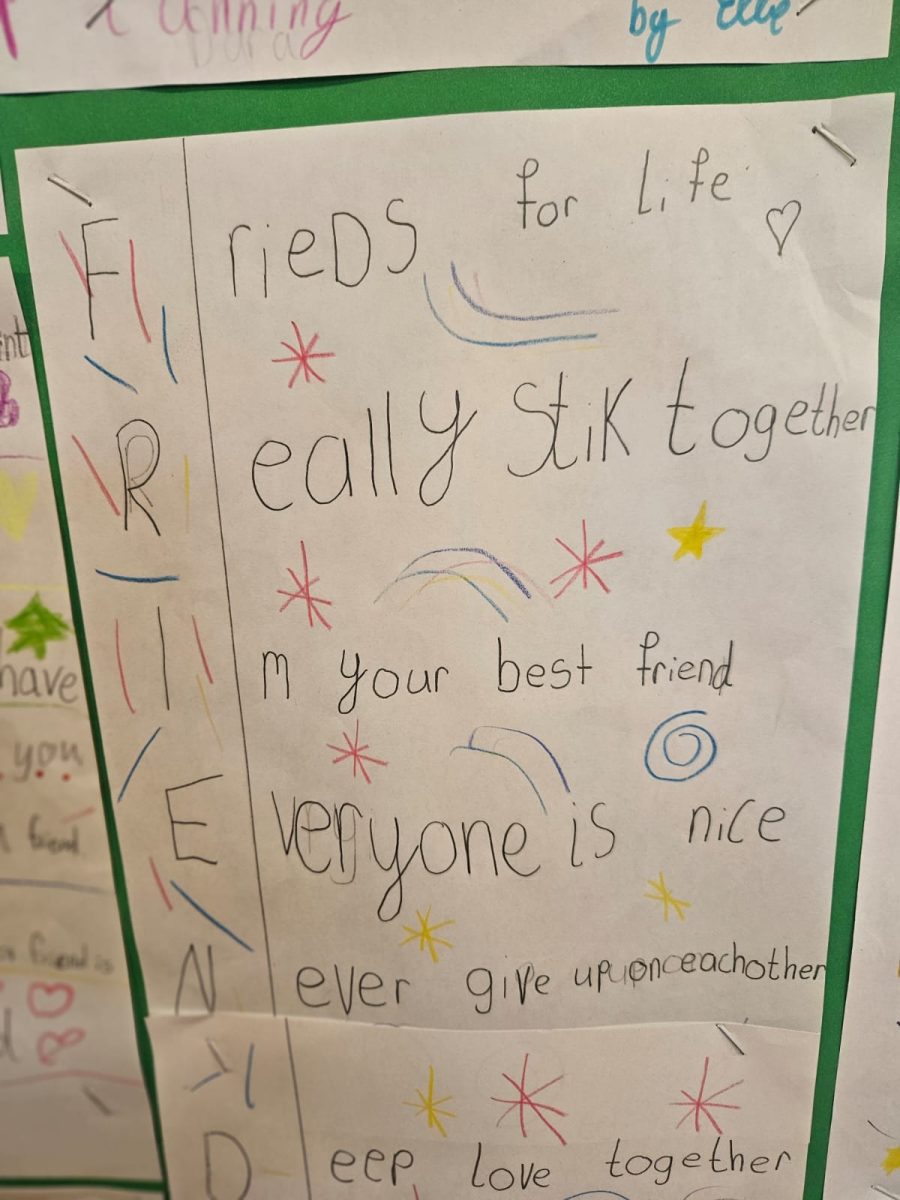 by Elle
F rieDS for Life
R eally StiK together
I m your best friend
E veryone is nice
N ever give upuponceachother
D eep love together
have
you
friend
friend is